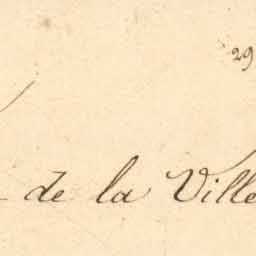 29
de la Ville